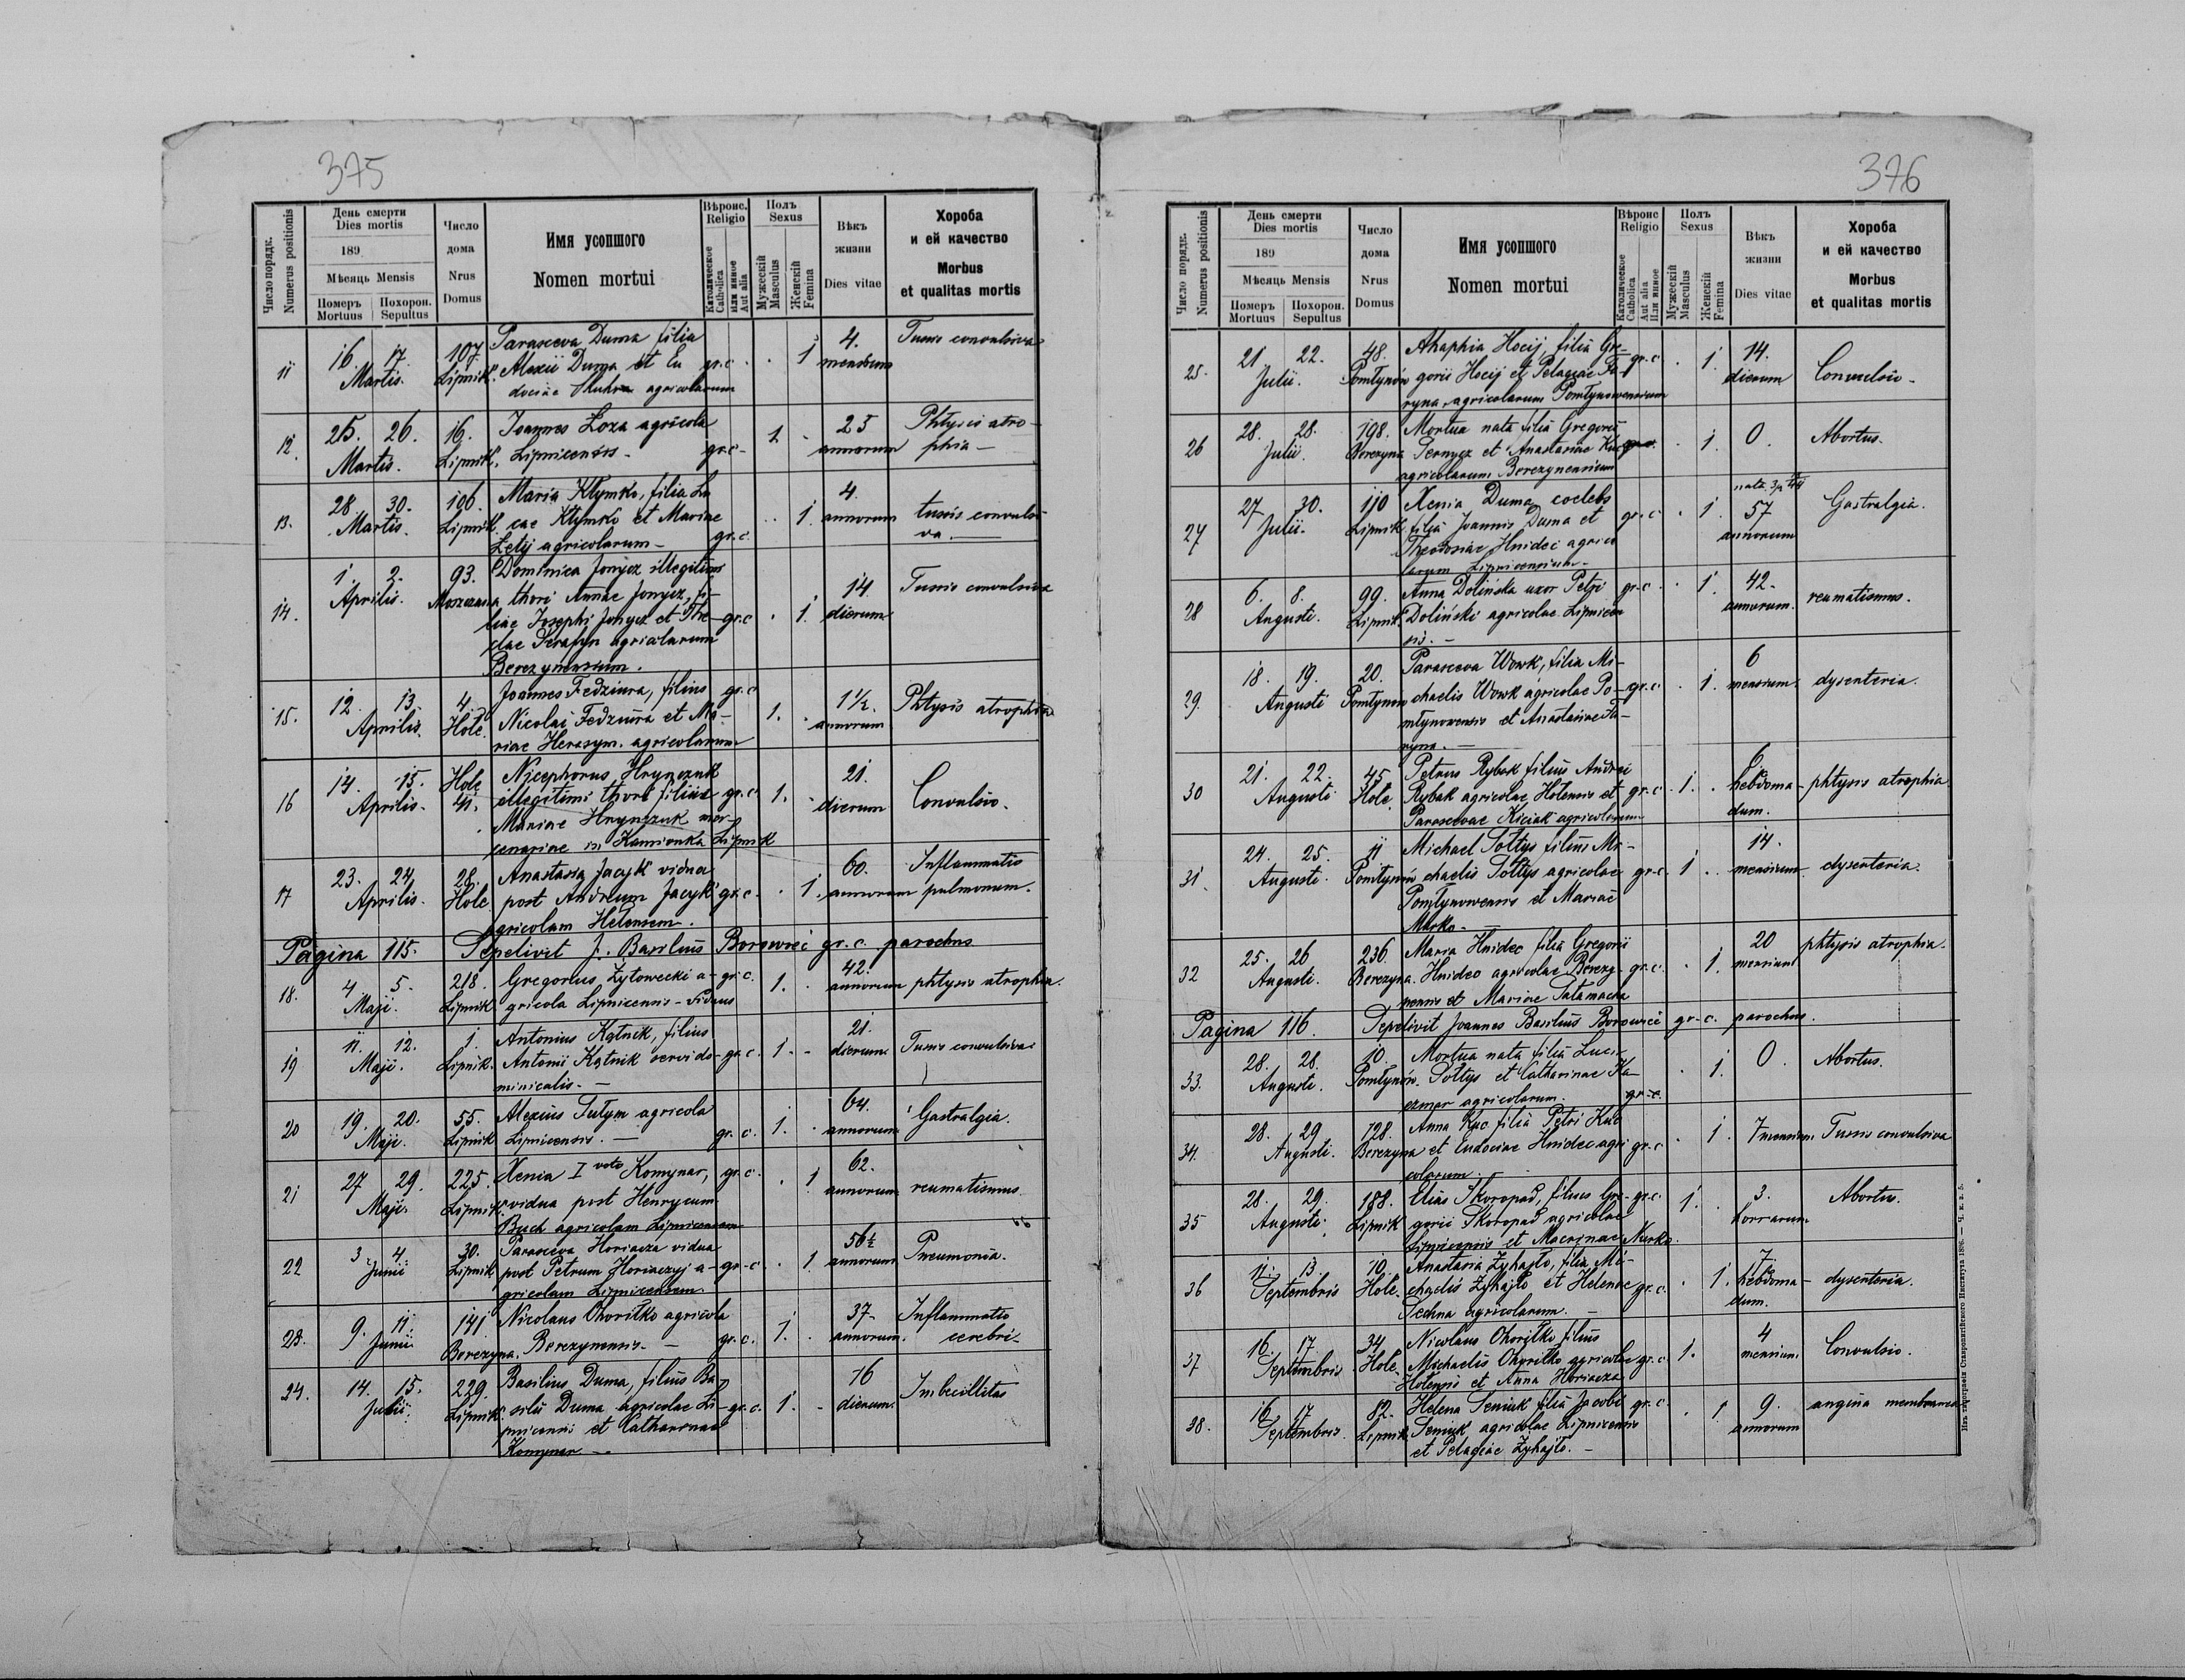 375
Число порядк. Numerus positionis
День смерти Dies mortis
189
Мѣсяць Mensis
Померъ Mortuus Похорон. Sepultus
Число дома Nrus Domus
Имя усопшого Nomen mortui
Вѣроис. Religio
Католическое Catholica
или инное Aut alia
Полъ Sexus
Мужескій Masculus
Женскій Femina
Вѣкъ жизни Dies vitae
Хороба и ей качество Morbus et qualitas mortis
11 16 17 Martis. 107 Lipnik. Parasceva Duma filia
Alexii Duma et Eu gr. c. . 1 4. mensium Tussis convulsiva
dociae agricolarum
12 25. 26. Martis. 16. Lipnik. Joannes Łoza agricola
Lipnicensis - gr. c - 1 - 25 annorum Phtysis atro-
phia -
13. 28 30. Martis. 106. Lipnik. Maria Kłymko, filia Lu
cae Kłymko et Mariae . 1. 4. annorum tussis convulsi
Łetij agricolarum - gr. c. va.
14. 1 2. Aprilis. 93. Moszczana Dominica Jonycz illegitimi
thori Annae Jonycz, fi-
liae Josephi Jonycz et The- gr. c . 1. 14 dierum Tussis convulsiva
clae Serafyn agricolarum
Berezynensium.
15. 12. 13. Aprilis. 4. Hole. Joannes Fedziura, filius gr. c
Nicolai Fedziura et Ma- 1. . 1½. annorum Phtysis atrophia
riae Herasym. agricolarum
16 14. 15. Aprilis. Hole 41. Nicephorus Hrynczuk
illegitimi thori filius gr. c. 1. 21. dierum Convulsio.
Mariae Hrynczuk mer-
cenariae in Kamionka Lipnik
17 23. 24. Aprilis. 28. Hole Anastasia Jacyk vidua
post Andreum Jacyk gr. c. . 1. 60. annorum Inflammatio pulmonum.
agricolam Holensem.
Pagina 115. Sepelivit J. Basilius Borowiec gr. c. parochus
18. 4 5. Maji. 218. Lipnik Gregorius Żytowecki a- gr. c. 1. . 42. annorum phtysis atrophia.
gricola Lipnicensis - viduus
19 11. 12. Maji. 1. Lipnik. Antonius Kątnik, filius
Antonii Kątnik servi do- gr. c. 1. - 21. dierum Tussis convulsiva
minicalis. -
20 19. 20. Maji. 55. Lipnik Alexius Tutym agricola
Lipnicensis. - gr. c. 1. . 64. annorum Gastralgia.
21 27 29. Maji. 225. Lipnik. Xenia I voto Komynar, gr. c.
vidua post Henrycum . 1 62. annorum reumatismus
Buch agricolam Lipnicensem
22 3 4. Junii 30. Lipnik Parasceva Horiacza vidua
post Petrum Horiaczyj a- gr. c . 1. 56½ annorum Pneumonia.
gricolam Lipnicensem
23. 9. 11. Junii 141 Berezyna. Nicolaus Ohoriłko agricola
Berezynensis. - gr. c. 1. . 37- annorum. Inflammatio
cerebri -
24. 14. 15. Julii. 229. Lipnik. Basilius Duma, filius Ba
silii Duma agricolae Li- gr. c. 1. - 16 dierum. Imbecillitas
pnicensis et Catharinae
Komynar -
376
Число порядк. Numerus positionis
День смерти Dies mortis
189
Мѣсяць Mensis
Померъ Mortuus Похорон. Sepultus
Число дома Nrus Domus
Имя усопшого Nomen mortui
Вѣроис Religio
Католическое Catholica
Aut alia Или инное
Полъ Sexus
Мужескій Masculus
Женскій Femina
Вѣкъ жизни Dies vitae
Хороба и ей качество Morbus et qualitas mortis
25. 21 22. Julii. 48. Pomłynów Ahaphia Hocij filia Gre- gr. c. . 1. 14. dierum Convulsio -
gorii Hocij et Pelagiae Ta-
ryna, agricolarum Pomłynowensium
26 28. 28. Julii. 198. Berezyna Mortua nata filia Gregorii
et Anastasiae Kuc gr. c. . 1. 0. Abortus.
agricolarum Berezynensium
27 27 30. Julii. 110 Lipnik Xenia Duma coelebs
filia Joannis Duma et gr. c . 1. 57 annorum Gastralgia.
Theodosiae Hnidec agrico
larum Lipnicensium.
28 6. 8. Augusti. 99. Lipnik. Anna Dolińska uxor Petri gr. c . 1. 42- annorum. reumatismus.
Doliński agricolae Lipnicen
sis. -
29. 18. 19. Augusti 20. Pomłynow Parasceva Wowk, filia Mi-
chaelis Wowk agricolae Po- gr. c. . 1. 6 mensium. dysenteria.
młynowensis et Anastasiae Ta-
ryna. -
30 21. 22. Augusti 45 Hole. Petrus Rybak filius Andrei
Rybak agricolae Holensis et gr. c. 1. . 6. hebdoma- phtysis atrophia.
Parascevae Kiciak agricolarum dum.
31. 24. 25. Augusti. 11 Pomłynów Michael Sołtys filius Mi-
chaelis Sołtys agricolae gr. c. 1 . 14. mensium dysenteria.
Pomłynowensis et Mariae
Murko -
32 25. 26 Augusti. 236. Berezyna. Maria Hnidec filia Gregorii
Hnidec agricolae Berezy- gr. c. . 1. 20 mensium phtysis atrophia.
nensis et Mariae Tatamacha
Pagina 116. Sepelivit Joannes Basilius Borowiec gr. c. parochus.
33. 28. 28. Augusti. 10. Pomłynów. Mortua nata filia Luci-
Sołtys et Catharinae Ka- . 1. 0. Abortus.
czmar agricolarum. gr. c.
34. 28. 29 Augusti. 128. Berezyna Anna Kuc filia Petri Kuc
et Eudociae Hnidec agri gr. c . 1. 7 mensium Tussis convulsiva
colarum.
35 28. 29. Augusti. 188. Lipnik Elias Skoropad, filius Gre- gr. c. 1. . 3. horrarum Abortus.
gorii Skoropad agricolae
Lipnicensis et Macrinae Murko.
36 11. 13. Septembris 10. Hole. Anastasia Żyhajło, filia Mi-
chaelis Żyhajło et Helenae gr. c. . 1. 7. hebdoma- dysenteria.
Sechna agricolarum. - dum.
37 16. 17. Septembris 34 Hole. Nicolaus Ohoriłko filius
Michaelis Ohoriłko agricolae gr. c. 1. 4 mensium. Convulsio.
Holensis et Anna Horiacza
38. 16 17. Septembris. 82. Lipnik. Helena Seniuk filia Jacobi gr. c. . 1 9. annorum angina membranea
Seniuk agricolae Lipnicensis
et Pelagiae Żyhajło. -
Изъ типографіи Ставропигійского Института 1896. — Ч. к. в. 5.